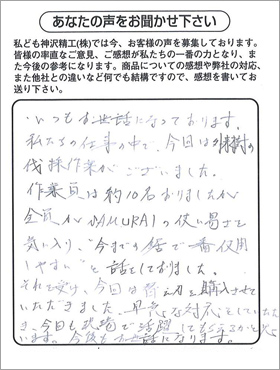 あなたの声をお聞かせ下さい
私ども神沢精工(株)では今、お客様の声を募集しております。
皆様の率直なご意見、ご感想が私たちの一番の力となり、ま
た今後の参考になります。商品についての感想や弊社の対応、
また他社との違いなど何でも結構ですので、感想を書いてお
送り下さい。
いつもお世話になっております。
私たちの仕事の中で、今回は樹の
伐採作業がございました。
作業員は約10名おりましたが
全員がSAMURAIの使い易さを
気に入り、"今までの鋸で一番使用
しやすい"と話しておりました。
それを受け、今回は替え刃を購入させて
いただきました。早急な対応をしていただ
き、今日も現場で活躍してもらえるかと思
います。今後もお世話になります。